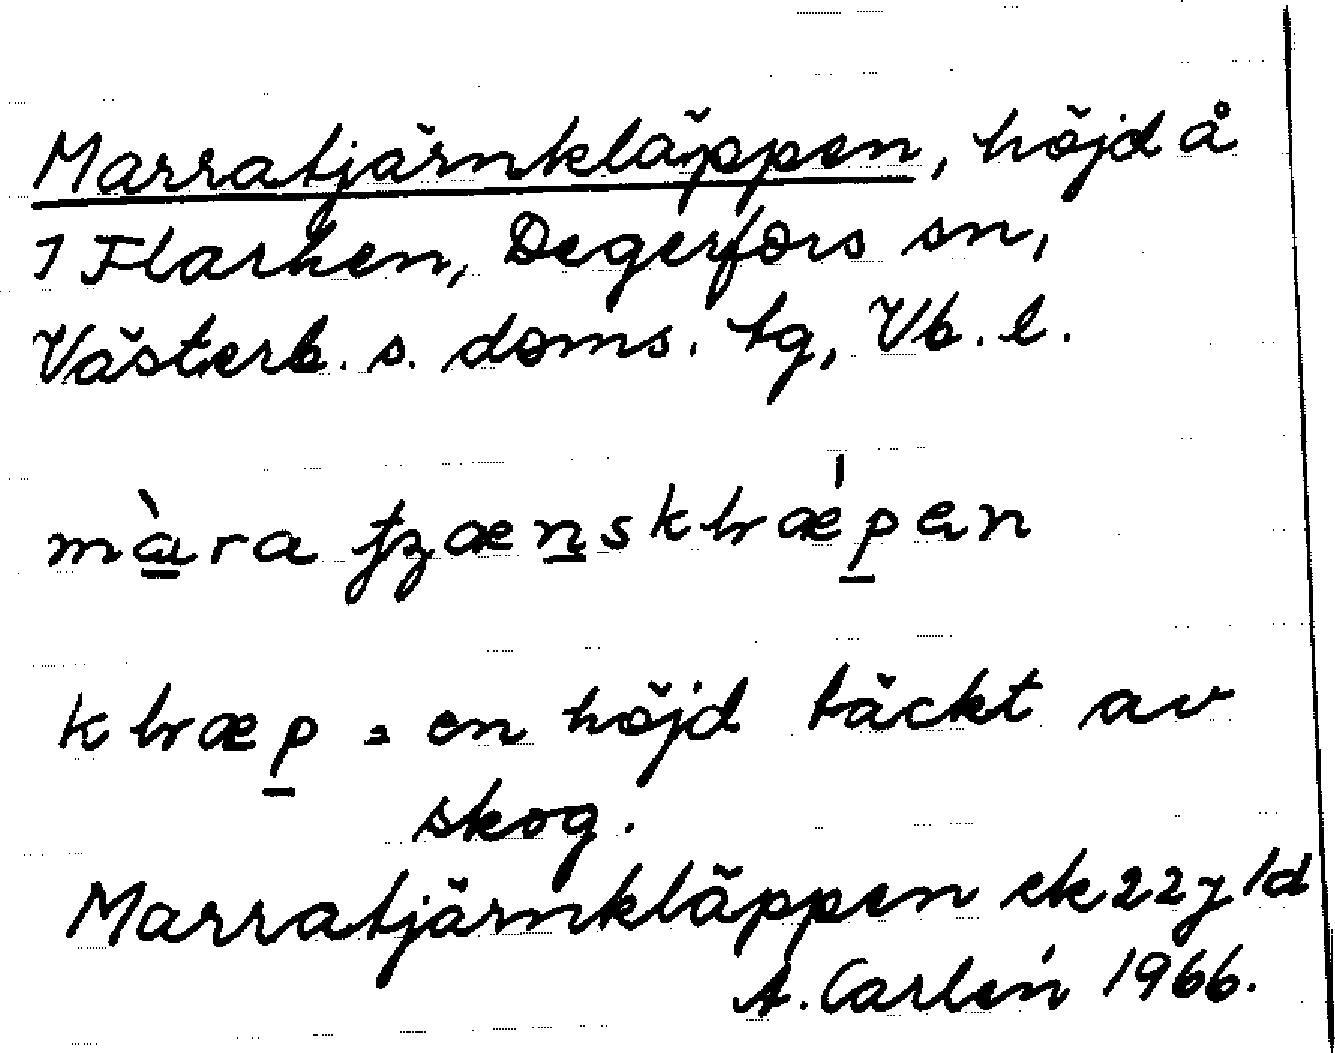 Marratjärnkläppen, höjd å
1 Flarken, Degerfors sn,
Västerb. s. doms. tg, Vb. l.
màra tjzænskbrǽpen
kbræp = en höjd täckt av
skog.
Marratjärnkläppen ek 22 j 1d
A. Carlén 1966.